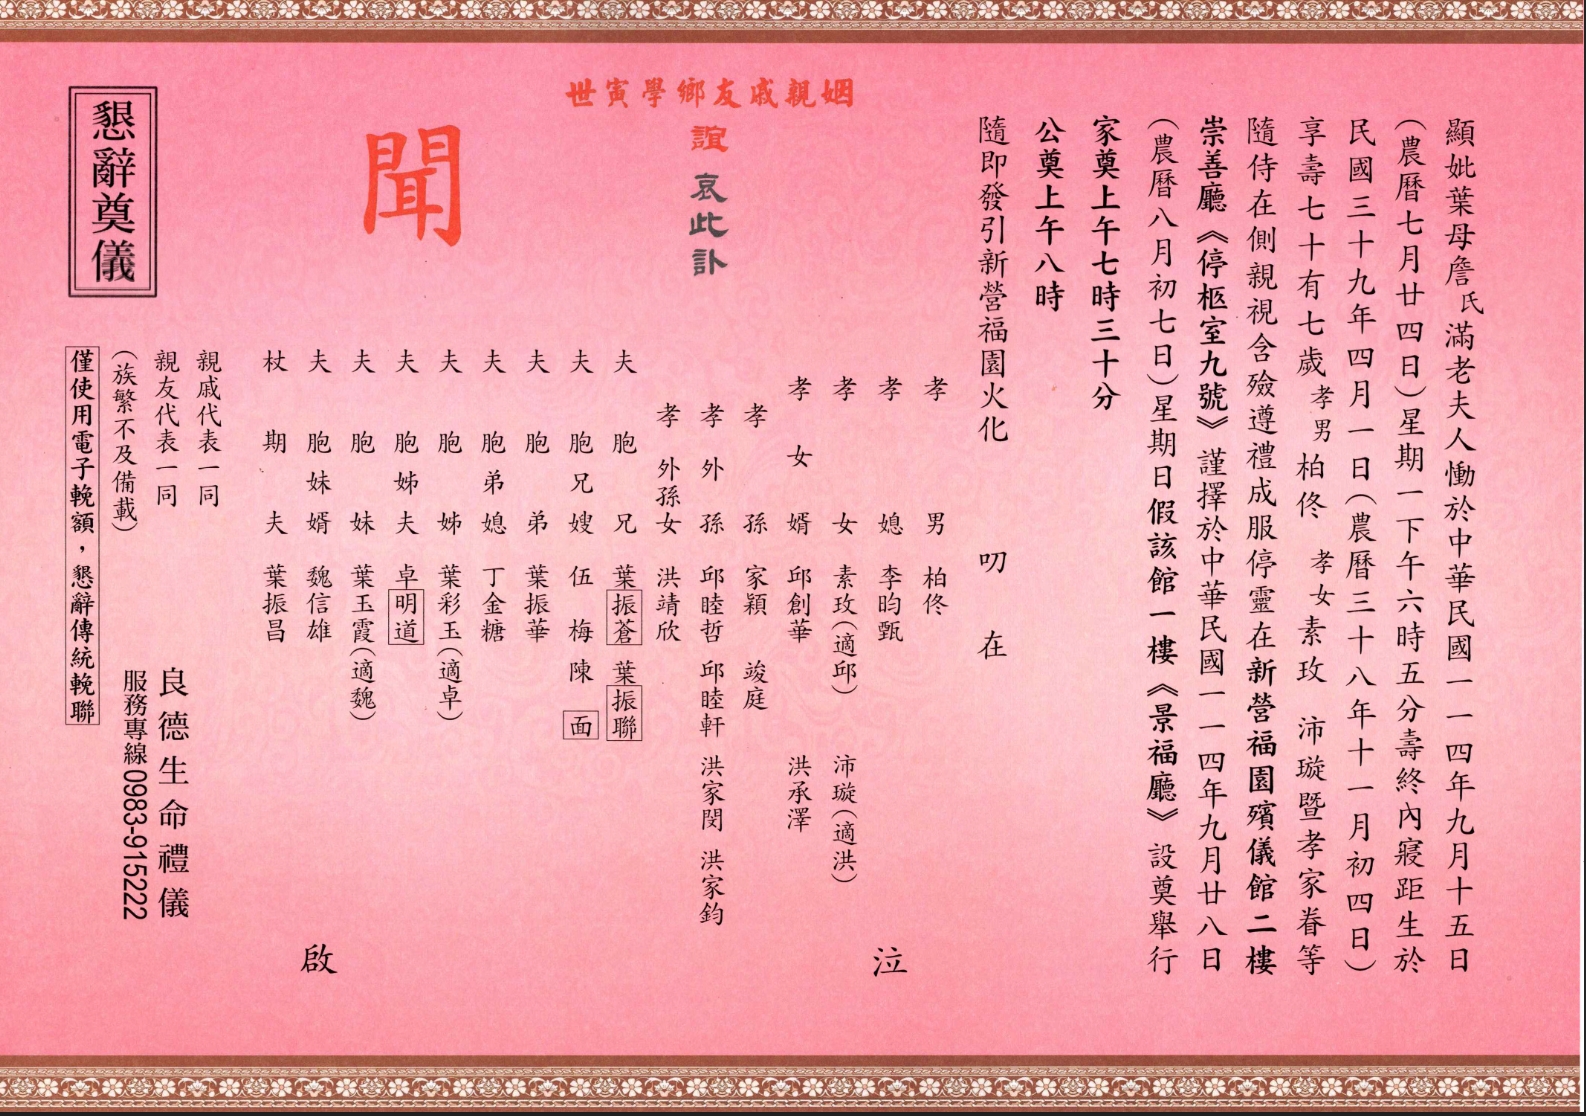 顯妣葉母詹氏滿老夫人慟於中華民國一一四年九月十五日
（農曆七月廿四日）星期一下午六時五分壽終內寢距生於
民國三十九年四月一日（農曆三十八年十一月初四日）
享壽七十有七歲孝男柏佟 孝女素玫 沛璇暨孝家眷等
隨侍在側親視含殮遵禮成服停靈在新營福園殯儀館二樓
崇善廳《停柩室九號》謹擇於中華民國一一四年九月廿八日
（農曆八月初七日）星期日假該館一樓《景福廳》設奠舉行
家奠上午七時三十分
公奠上午八時
隨即發引新營福園火化
叨在
姻親戚友鄉學寅世
誼
哀此訃
聞
孝男 柏佟
孝媳 李昀甄
孝女 素玫（適邱） 沛璇（適洪）
孝女婿 邱創華 洪承澤
孝孫 家穎 竣庭
孝外孫 邱睦哲 邱睦軒 洪家閔 洪家鈞
孝外孫女 洪靖欣
泣
夫胞兄 葉振蒼 葉振聯
夫胞兄嫂 伍梅 陳面
夫胞弟 葉振華
夫胞弟媳 丁金糖
夫胞姊 葉彩玉（適卓）
夫胞姊夫 卓明道
夫胞妹 葉玉霞（適魏）
夫胞妹婿 魏信雄
杖期夫 葉振昌
啟
親戚代表一同
親友代表一同
（族繁不及備載）
良德生命禮儀
服務專線0983-915222
懇辭奠儀
僅使用電子輓額，懇辭傳統輓聯